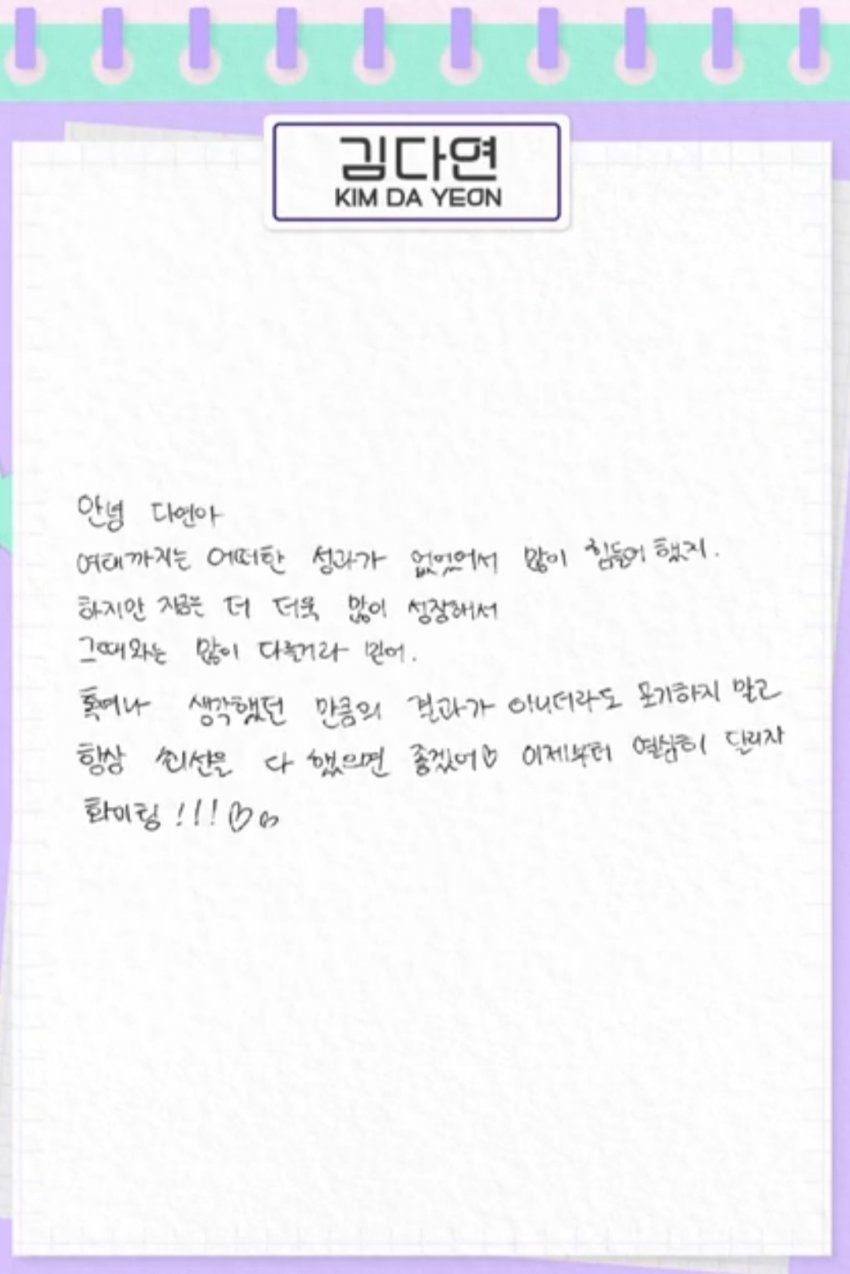 김다연
KIM DA YEON
안녕 다연아
여태까지는 어떠한 성과가 없었어서 많이 힘들어 했지.
하지만 지금은 더 더욱 많이 성장해서
그때와는 많이 다를거라 믿어.
혹여나 생각했던 만큼의 결과가 아니더라도 포기하지 말고
항상 최선을 다 했으면 좋겠어♡ 이제부터 열심히 달리자
화이팅!!!♡♡